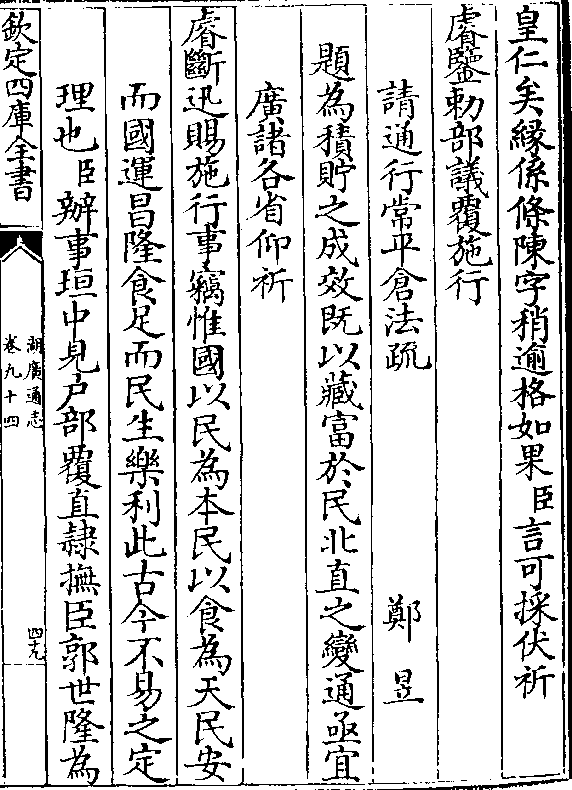 皇仁矣緣係條陳字稍逾格如果臣言可採伏祈
睿鑒勅部議覆施行
請通行常平倉法疏 鄭昱
題為積貯之成效既以藏富於民北直之變通亟宜
廣諸各省仰祈
睿斷迅賜施行事竊惟國以民為本民以食為天民安
而國運昌隆食足而民生樂利此古今不易之定
理也臣辦事垣中見户部覆直隷撫臣郭世隆為
欽定四庫全書
湖廣通志
卷九十四
四十九